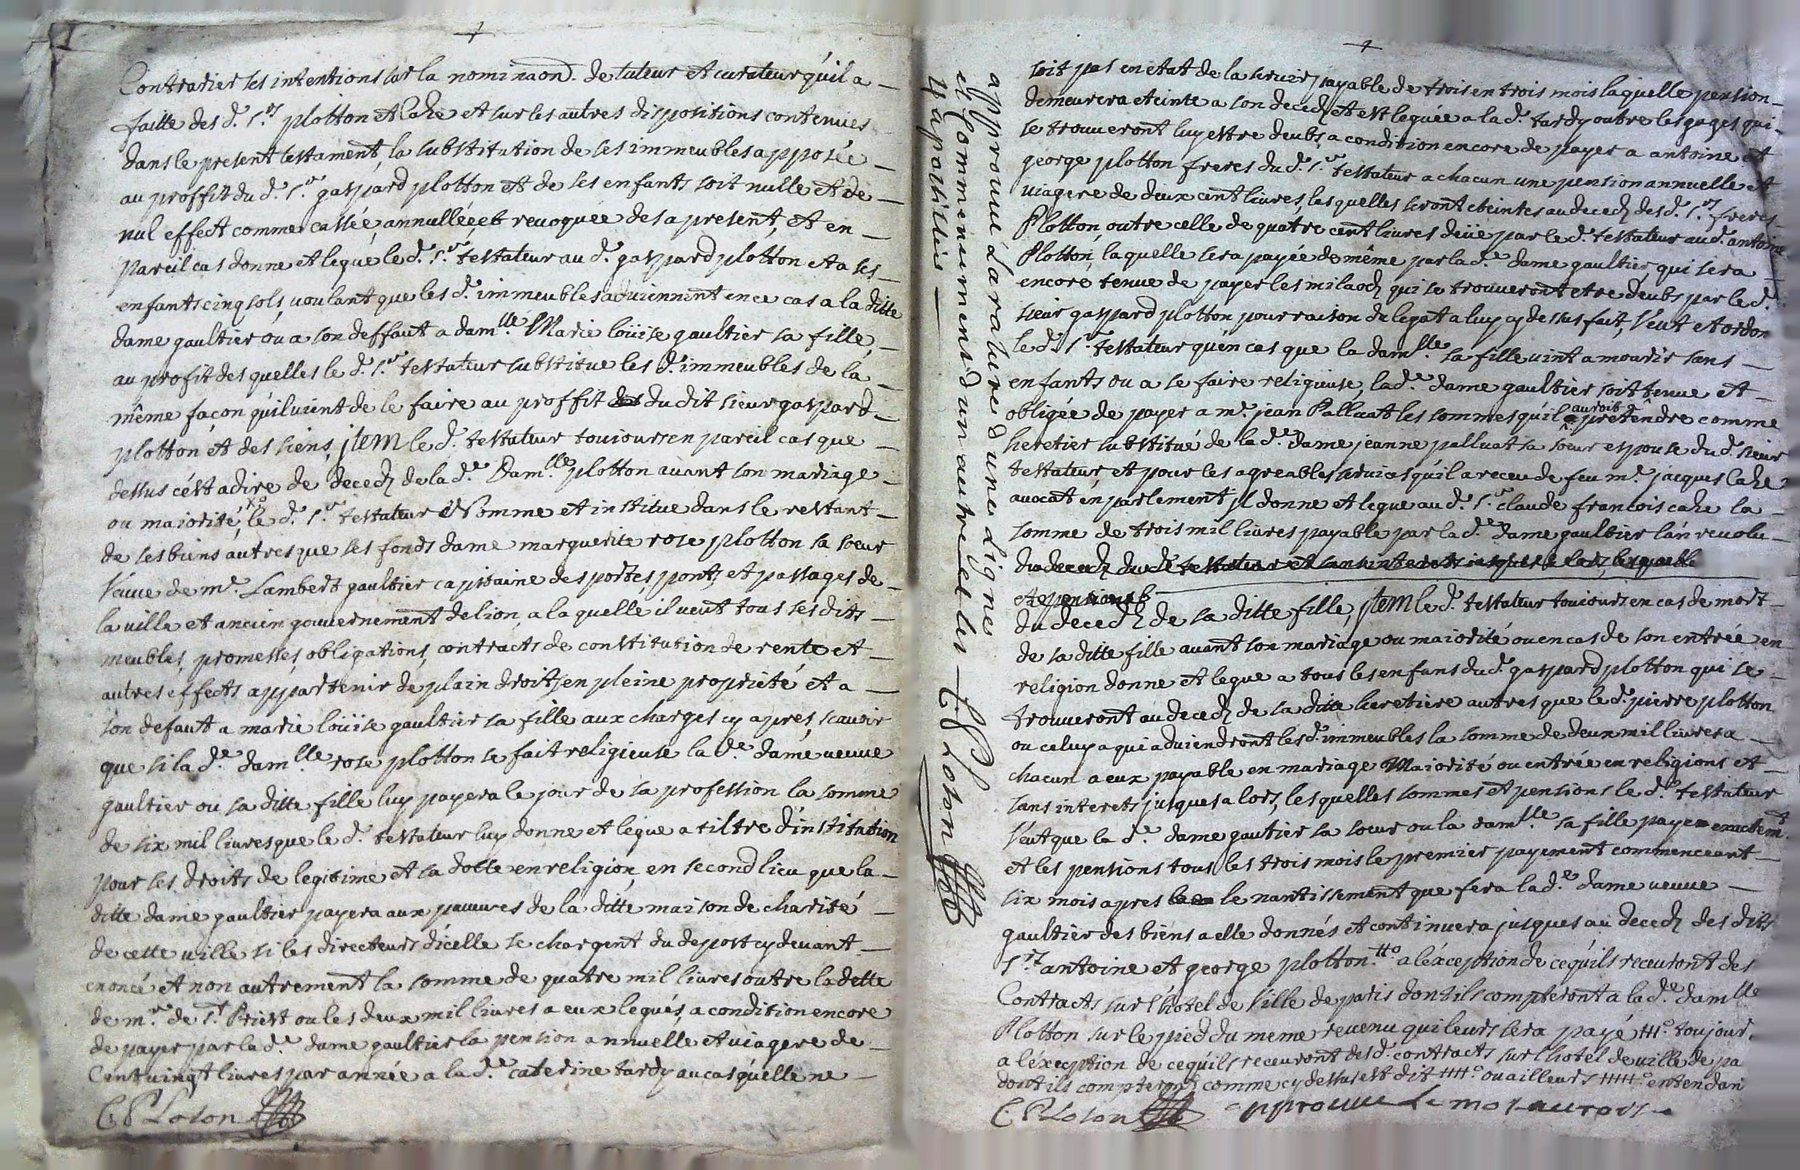 Contrarier ses intentions sur la nominaon de tuteur et curateur qu'il a
faitte des d. s.rs plotton et Caze et sur les autres dispositions contenues
dans le present testament, la substitution de ses immeubles apposée
au proffit du d. s.r gaspard plotton et de ses enfants soit nulle et de
nul effect comme cassée, annullée, et revoquée des a present, et en
pareil cas donne et legue le d. s.r testateur au d. gaspard plotton et a ses
enfants cinq sols, voulant que les d. immeubles adviennent en ce cas a la ditte
dame gaultier ou a son deffaut a dam.lle Marie loüise gaultier sa fille,
au profit des quelles le d. s.r testateur substitue les d. immeubles de la
même façon quil vient de le faire au proffit du dit sieur gaspard
plotton et des siens, jtem le d. testateur toujours en pareil cas que
dessus c'est a dire de decedz de la d.e Dam.lle plotton avant son mariage
ou majorité, le d. s.r testateur Nomme et institue dans le restant
de ses biens autres que ses fonds dame marguerite rose plotton sa soeur
veuve de m.r Lambert gaultier capitaine des portes, ponts et passages de
la ville et ancien gouvernement de lion, a laquelle il veut tous ses dits
meubles, promesses, obligations, contracts de constitution de rente et
autres effects appartenir de plain droit, en pleine propriété et a
son defaut a marie loüise gaultier sa fille aux charges cy aprés scavoir
que si la d.e dam.lle rose plotton se fait religieuse la d.e dame veuve
gaultier ou sa ditte fille luy payera le jour de sa profession la somme
de six mil livres que le d. testateur luy donne et legue a tiltre d'institution
pour ses droits de legitime et sa dotte en religion, en second lieu que la
ditte dame gaultier payera aux pauvres de la ditte maison de charité
de cette ville si les directeurs d'icelle se chargent du depost cy devant
enoncé et non autrement la somme de quatre mil livres outre la dette
de m.r de s.t Priest ou les deux mil livres a eux legués, a condition encore
de payer par la d.e dame gaultier la pension annuelle et viagere de
Cent vingt livres par année a la d.e caterine tardy au cas qu'elle ne
C. PLoton
approuvé la rature d'une ligne
et commencement d'un autre et lu
PLoton
soit pas en état de la servir, payable de trois en trois mois laquelle pension
demeurera eteinte a son decedz et est leguée a la d. tardy outre les gages qui
se trouveront luy estre deubs, a condition encore de payer a antoine et
george plotton freres du d. s.r testateur a chacun une pension annuelle et
viagere de deux cent livres, lesquelles seront eteintes au decedz des d. s.rs freres
Plotton, outre celle de quatre cent livres deüe par le d. testateur au d. antoine
Plotton, laquelle sera payée de même par la d.e dame gaultier, qui sera
encore tenue de payer les milaodz qui se trouveront etre deubs par le d.
sieur gaspard plotton pour raison du legat a luy cy dessus fait, Veut et ordon
le d. s.r testateur qu'en cas que la dam.lle sa fille vint a mourir sans
enfants ou a se faire religieuse, la d.e dame gaultier soit tenue et
obligée de payer a m.r jean Palluat les sommes qu'il auroit a pretendre comme
heretier substitué de la d.e Dame jeanne palluat sa soeur espouse du d. sieur
testateur, et pour les agreables services qu'il a receu de feu m.r jacques Caze
avocat en parlement, Jl donne et legue au d. s.r claude francois caze la
somme de trois mil livres payable par la d.e Dame gaultier l'an revolu
du decedz du d. testateur et sans interets jusques a lors, lesquelles
et pensions
du decedz de sa ditte fille, jtem le d. testateur toujours en cas de mort
de sa ditte fille avant son mariage ou majorité ou en cas de son entrée en
religion donne et legue a tous les enfans du d. gaspard plotton qui se
trouveront au decedz de sa ditte heretiere autres que le d. pierre plotton
ou celuy a qui adviendront les d. immeubles la somme de deux mil livres a
chacun a eux payable en mariage Majorité ou entrée en religion, et
sans interets jusques a lors, lesquelles sommes et pensions le d. testateur
veut que la d.e dame gautier sa soeur ou la dam.lle sa fille paye exactem.t
et les pensions tous les trois mois le premier payement commenceant
six mois apres le nantissement que fera la d.e dame veuve
gaultier des biens a elle donnés et continuera jusques au decedz des dits
s.rs antoine et george plotton ++o a l'exception de ce qu'ils recevront des
Contracts sur l'hotel de Ville de paris dont ils compteront a la d.e dam.lle
Plotton sur le pied du meme revenu qui leurs sera payé +++o toujour
a l'exception de ce qu'ils recevront des d. contracts sur l'hotel de ville de pa
dont ils compteront comme cy dessus est dit ++++o ou ailleurs +++++o entendan
C. PLoton approuvé le mot auroit a